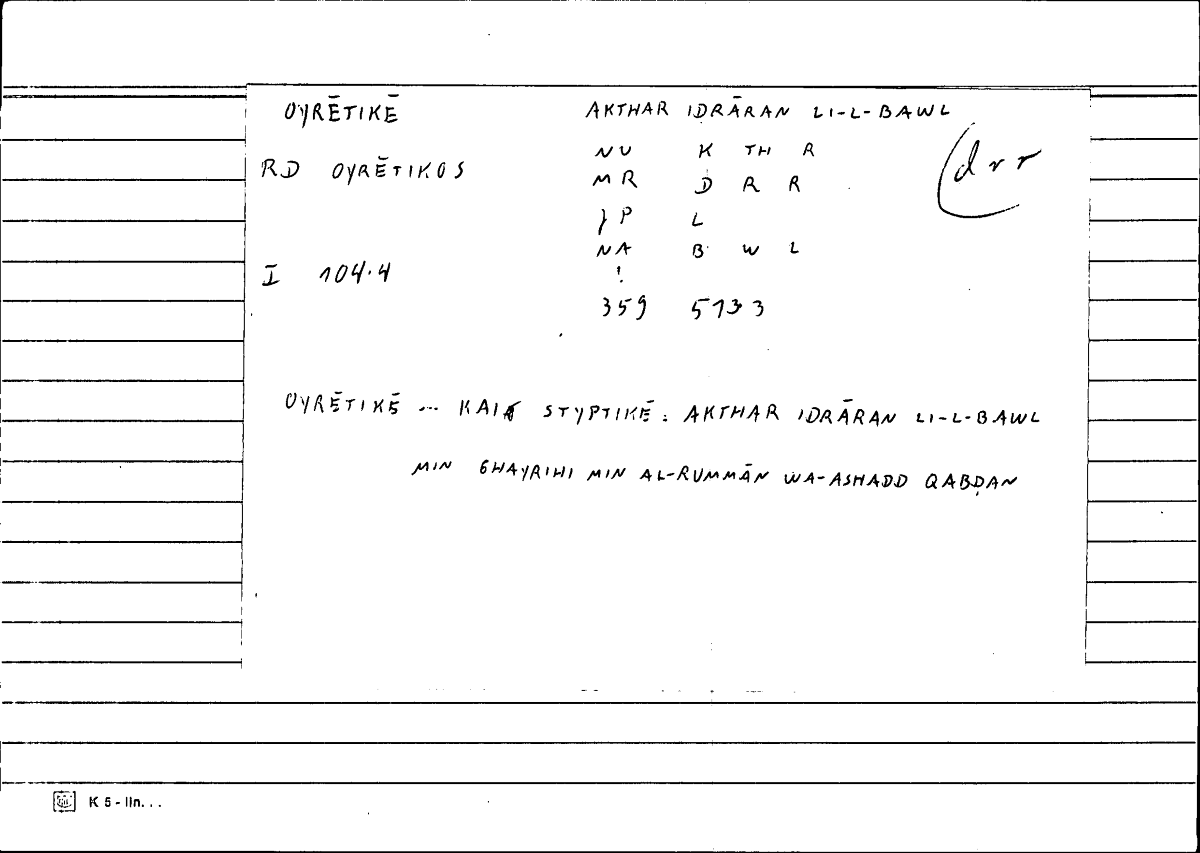 OYRĒTIKĒ AKTHAR IDRĀRAN LI-L-BAWL
RD OYRĒTIKOS NU K TH R
(drr
MR D R R
JP L
NA B W L
I 104.4 !
359 5133
OYRĒTIKĒ ... KAI STYPTIKĒ: AKTHAR IDRĀRAN LI-L-BAWL
MIN GHAYRIHI MIN AL-RUMMĀN WA-ASHADD QABḌAN
K 5 - lin. . .